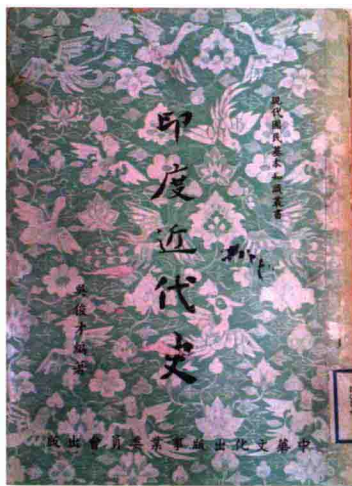 現代國民基本知識叢書
印度近代史
吳俊才編著
中華文化出版事業委員會出版